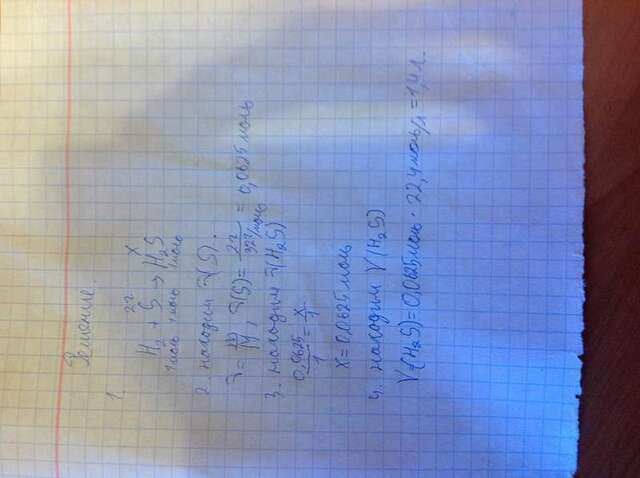 Решение.
1.
2г x
H₂ + S → H₂S
1моль 1моль 1моль
2. находим ν(S).
ν = m/M, ν(S) = 2г/32г/моль = 0,0625 моль
3. находим ν(H₂S)
0,0625/1 = x/1
x = 0,0625 моль
4. находим V(H₂S)
V(H₂S) = 0,0625 моль · 22,4 моль/л = 1,4 л.